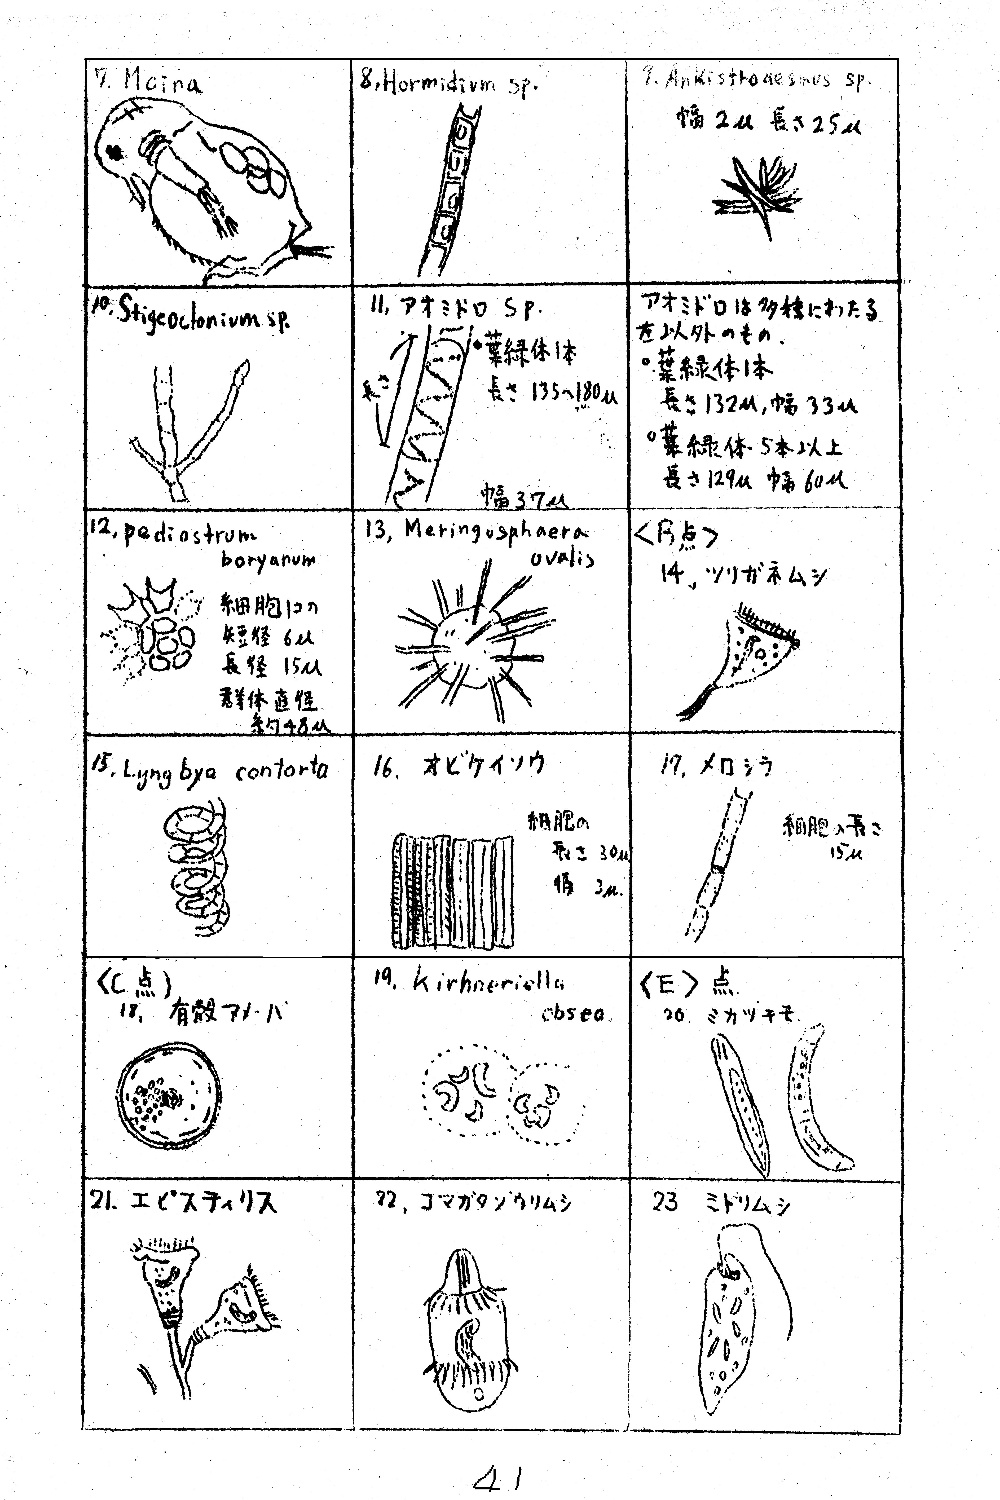 7. Moina
8, Hormidium sp.
9. Ankistrodesmus sp.
幅 2μ 長さ25μ
10. Stigeoclonium sp.
11, アオミドロ sp.
長さ
葉緑体1本
長さ 135~180μ
幅 37μ
アオミドロは多種にわたる
左以外のもの.
○葉緑体1本
長さ132μ, 幅 33μ
○葉緑体 5本以上
長さ129μ 幅 60μ
12, pediastrum
boryanum
細胞1コの
短径 6μ
長径 15μ
群体直径
約48μ
13, Meringosphaera
ovalis
<B点>
14, ツリガネムシ
15. Lyngbya contorta
16. オビケイソウ
細胞の
長さ 30μ
幅 3μ.
17. メロシラ
細胞の長さ
15μ
<C点>
18, 有殻アメーバ
19. Kirhneriella
obsea.
<E>点
20. ミカヅキモ
21. エピスティリス
22, コマガタゾウリムシ
23 ミドリムシ
41